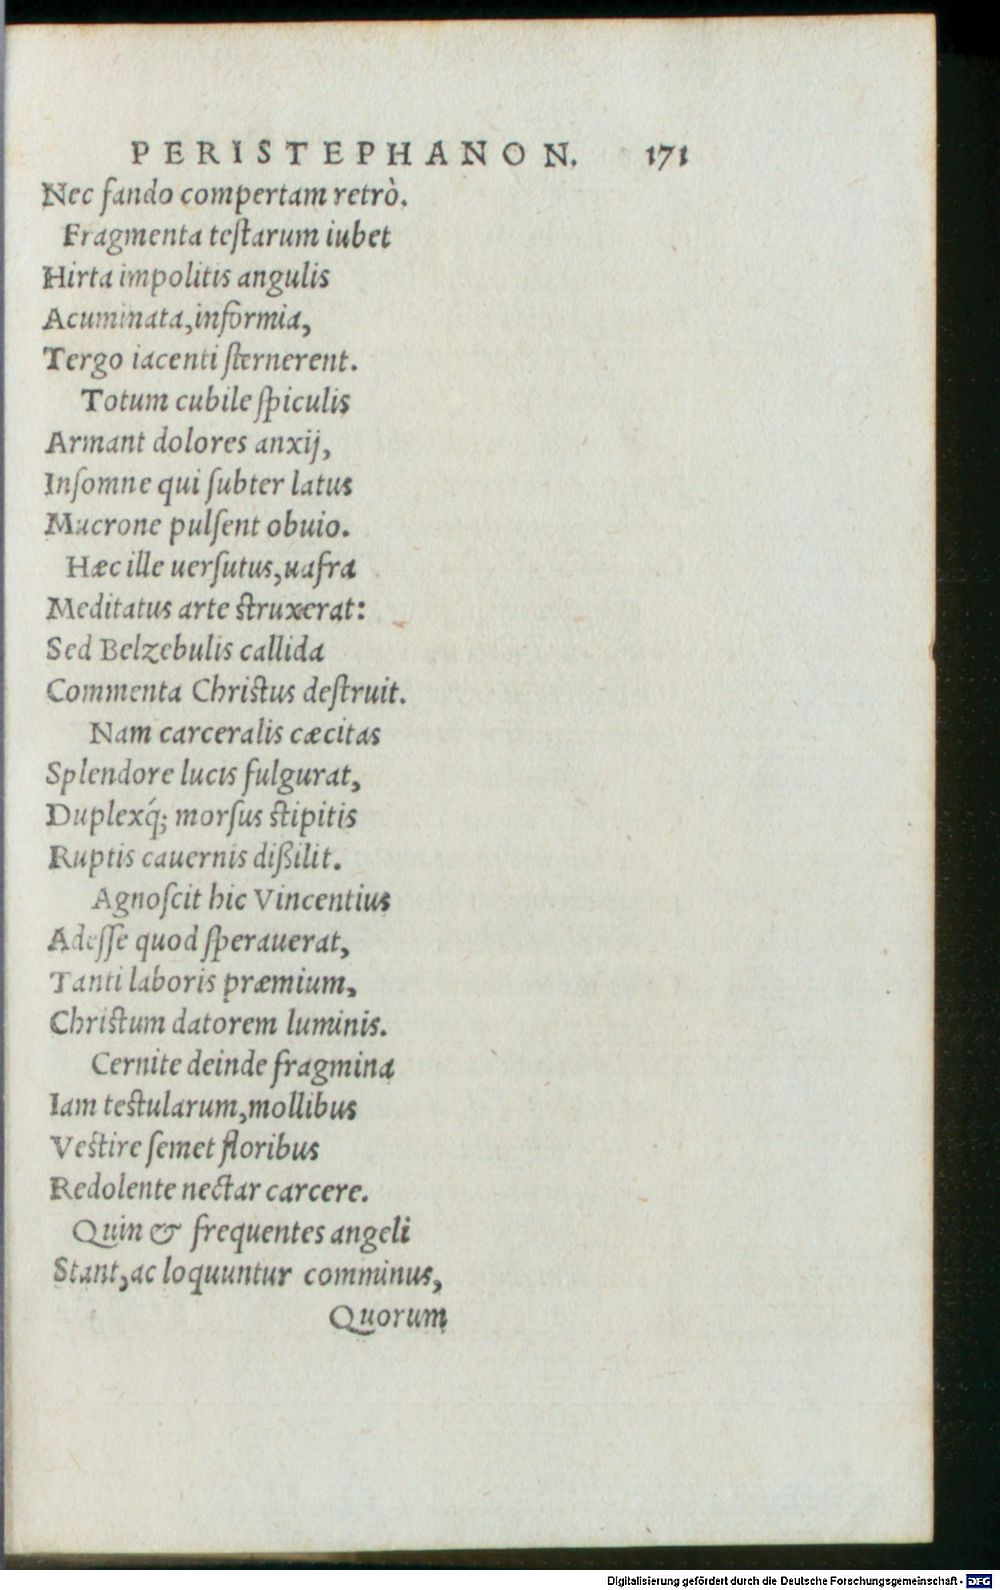 PERISTEPHANON. 171
Nec fando compertam retrò.
Fragmenta teſtarum iubet
Hirta impolitis angulis
Acuminata, informia,
Tergo iacenti ſternerent.
Totum cubile ſpiculis
Armant dolores anxij,
Inſomne qui ſubter latus
Mucrone pulſent obuio.
Hæc ille uerſutus, uafra
Meditatus arte ſtruxerat:
Sed Belzebulis callida
Commenta Chriſtus deſtruit.
Nam carceralis cæcitas
Splendore lucis fulgurat,
Duplexq́; morſus ſtipitis
Ruptis cauernis dißilit.
Agnoſcit hic Vincentius
Adeſſe quod ſperauerat,
Tanti laboris præmium,
Chriſtum datorem luminis.
Cernite deinde fragmina
Iam teſtularum, mollibus
Veſtire ſemet floribus
Redolente nectar carcere.
Quin & frequentes angeli
Stant, ac loquuntur comminus,
Quorum
Digitalisierung gefördert durch die Deutsche Forschungsgemeinschaft - DFG